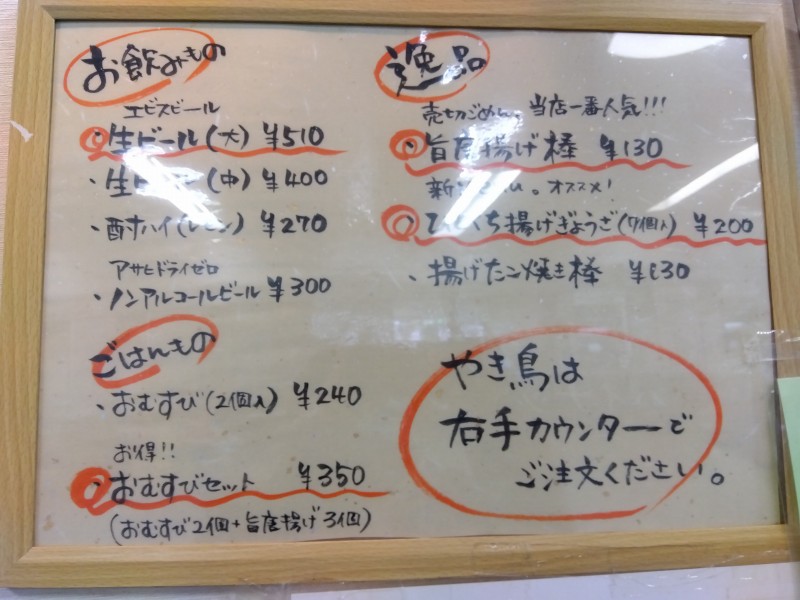 お飲みもの
エビスビール
・生ビール(大) ¥510
・生ビール(中) ¥400
・酎ハイ(レモン) ¥270
アサヒドライゼロ
・ノンアルコールビール ¥300
ごはんもの
・おむすび(2個入) ¥240
お得!!
・おむすびセット ¥350
(おむすび2個+旨唐揚げ3個)
逸品
売切ごめん。当店一番人気!!!
・旨唐揚げ棒 ¥130
オススメ!
・ひとくち揚げぎょうざ(7個入) ¥200
・揚げたこ焼き棒 ¥130
やき鳥は
右手カウンターで
ご注文ください。